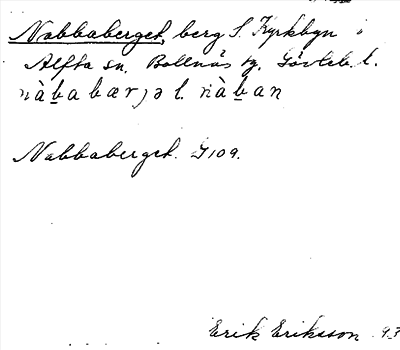 Nabbaberget, berg S. Kyrkbyn i
Alfta sn. Bollnäs tg. Gävleb. l.
nàb̲abærjə l. nàb̲an
Nabbaberget. J109.
Erik Eriksson 93